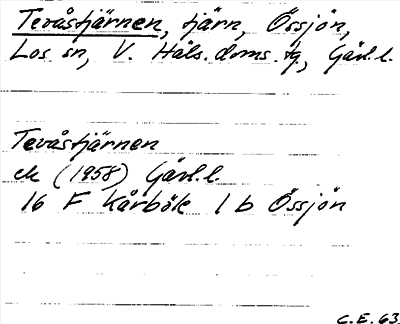 Tevåstjärnen, tjärn, Össjön,
Los sn, V. Häls. doms. tg, Gävl.l.
Tevåstjärnen
ek (1958) Gävl.l.
16 F Kårböle 1 b Össjön
C.E. 63.